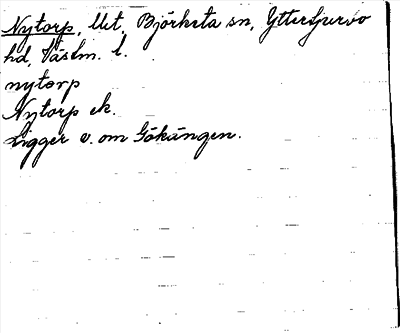 Nytorp, Uet, Björksta sn, Yttertjurbo
hd, Västm. l.
nytorp
Nytorp ek.
Ligger v. om Gökängen.